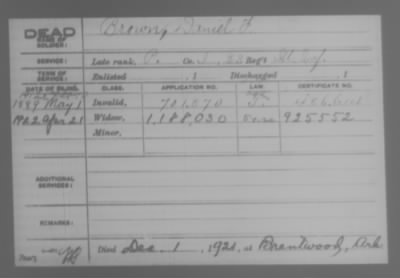 DEAD
NAME OF SOLDIER: Brown, Daniel F.
SERVICE: Late rank, P. Co. I, 83 Reg't Ill. Inf.
TERM OF SERVICE: Enlisted , 1 Discharged , 1
DATE OF FILING. CLASS. APPLICATION NO. LAW. CERTIFICATE NO.
1889 May 1 Invalid, 701,570
1922 Apr 21 Widow, 1,188,030 925552
Minor,
ADDITIONAL SERVICES:
REMARKS:
Died Dec. 1, 1921, at Brentwood, Ark